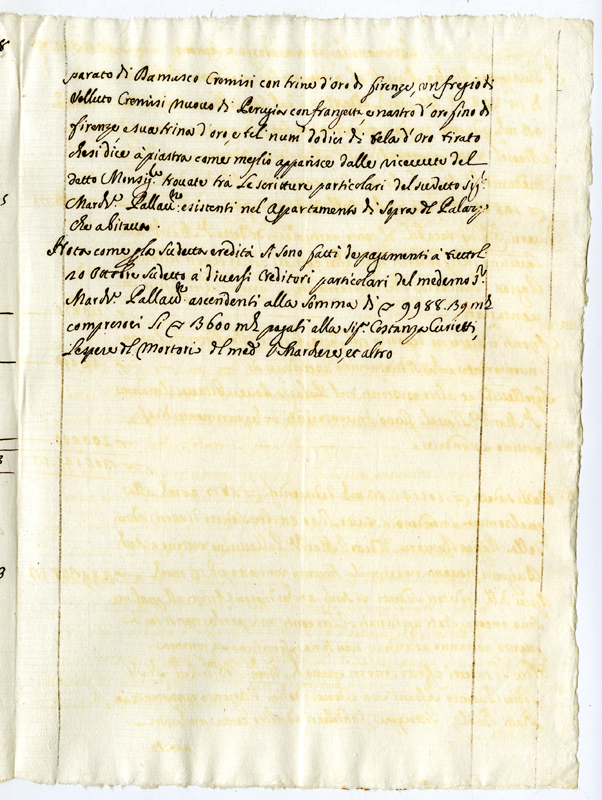 parato di Damasco Cremisi con trina d'oro di firenze, con fregio di
Velluto Cremisi nuovo di Perugia con frangetta e nastro d'oro fino di
firenze e sua trina d'oro, e teli num.o dodici di tela d'oro tirato
che si dice à piastra come meglio apparisce dalle ricevute del
detto Monsù trovate trà le scritture particolari del sudetto Sig.r
March.e Pallau.ni esistenti nel Appartamento di Sopra del Palazzo
che abitava.
Nota come gl'a sudetta eredità si sono fatti de pagamenti à tutto li
20 Ottobre sudetto à diversi Creditori particolari del medemo S.r
March.e Pallau.ni ascendenti alla somma di 9988.39 m.ta
compresoci li 3600 m.ta pagati alla Sig.ra Costanza
le spese del Mortorio del med.o S. Marchese, et altro